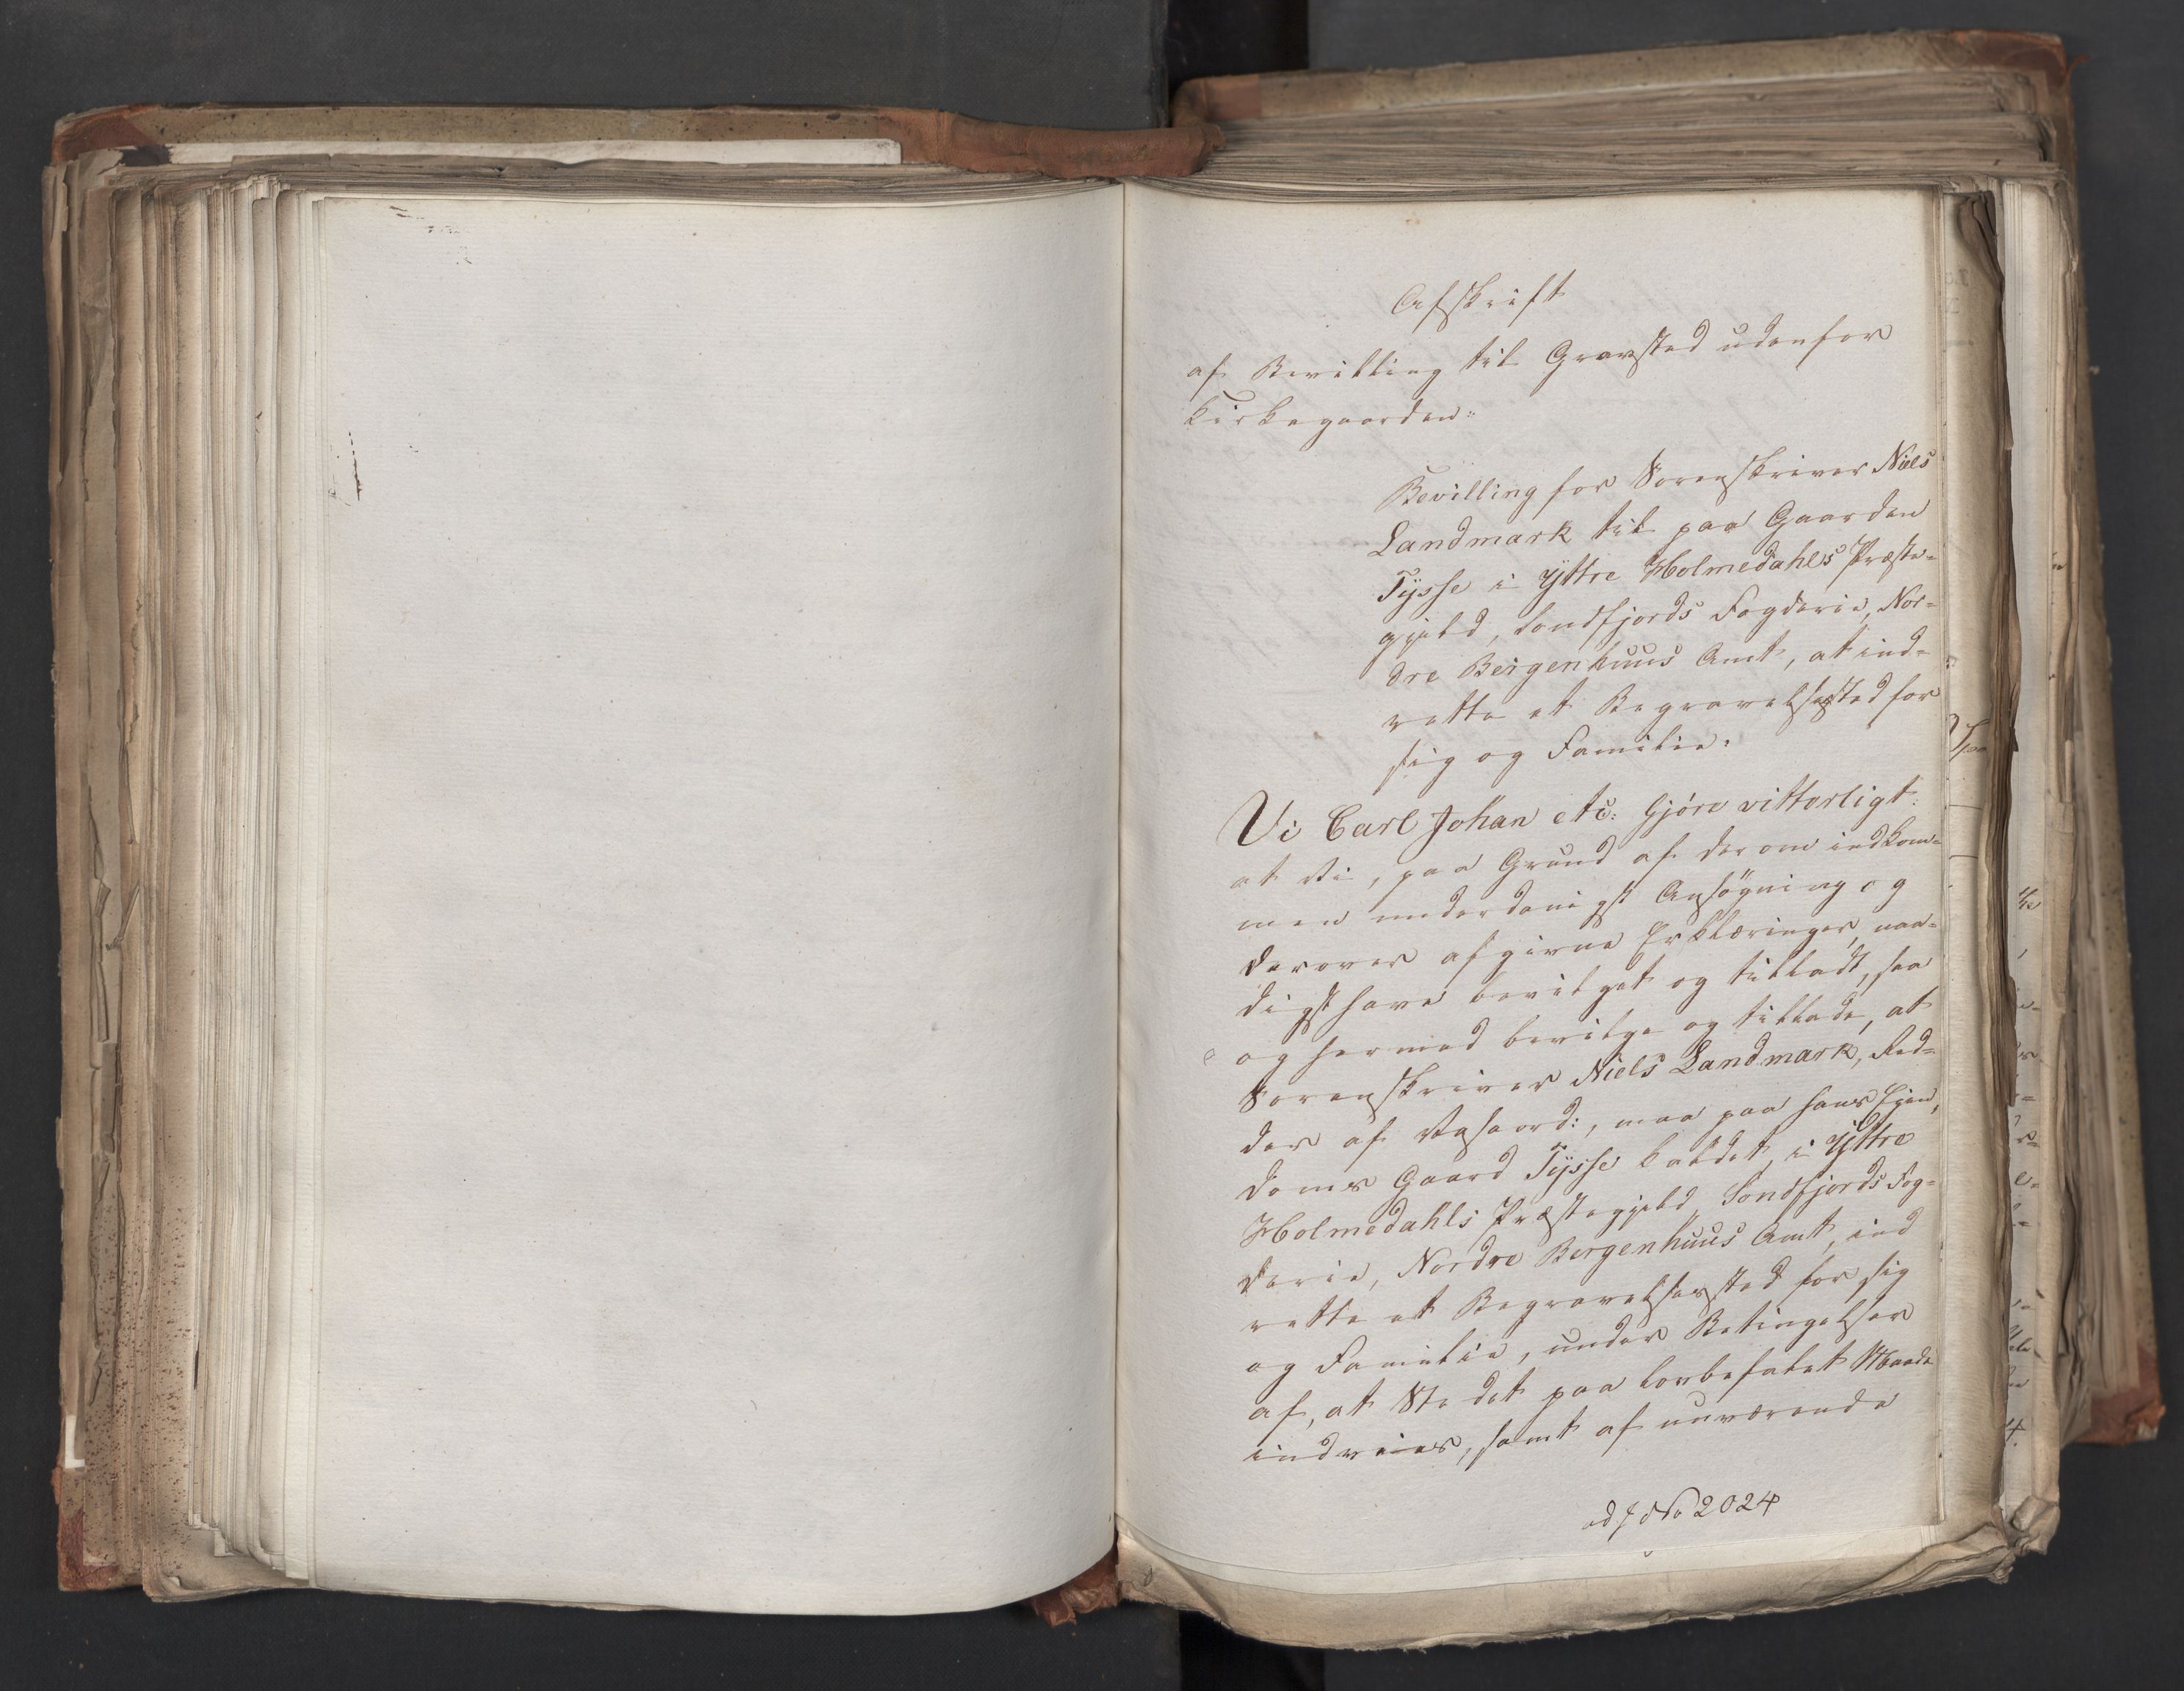 Afskrift
af Bevilling til Gravsted udenfor
Kirkegaarden:
Bevilling for Sorenskriver Niels
Landmark til paa Gaarden
Tysse i Yttre Holmedahls Præste-
gjeld, Søndfjords Fogderie, Nor-
dre Bergenhuus Amt, at ind-
rette et Begravelsessted for
sig og Familie.
Vi Carl Johan etc: Gjøre vitterligt:
at Vi, paa Grund af derom indkom-
men underdanigst Ansøgning og
derover afgivne Erklæringer, naa-
digst have bevilget og tilladt, saa
og hermed bevilge og tillade, at
Sorenskriver Niels Landmark, Rid-
der af Vasaord:, maa paa hans Eien-
doms Gaard Tysse kaldet, i Yttre
Holmedahls Præstegjeld, Søndfjords Fog-
derie, Nordre Bergenhuus Amt, ind
rette et Begravelsessted for sig
og Familie, under Betingelser
af, at Stedet paa lovbefalet Maade
indvies, samt af nuværende
ad J No 2024